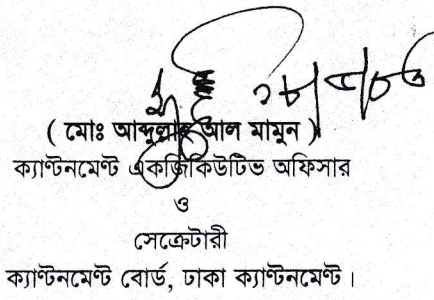 ( মোঃ আব্দুল্লাহ আল মামুন )
ক্যান্টনমেন্ট একজিকিউটিভ অফিসার
ও
সেক্রেটারী
ক্যান্টনমেন্ট বোর্ড, ঢাকা ক্যান্টনমেন্ট।